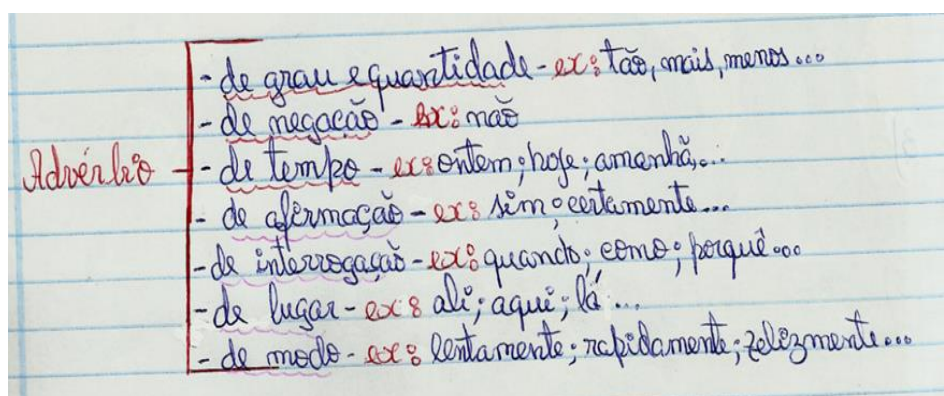 - de grau e quantidade - ex: tão, mais, menos...
- de negação - ex: não
- de tempo - ex: ontem; hoje; amanhã...
Advérbio
- de afirmação - ex: sim; certamente...
- de interrogação - ex: quando; como; porquê...
- de lugar - ex: ali; aqui; lá...
- de modo - ex: lentamente; rapidamente; felizmente...